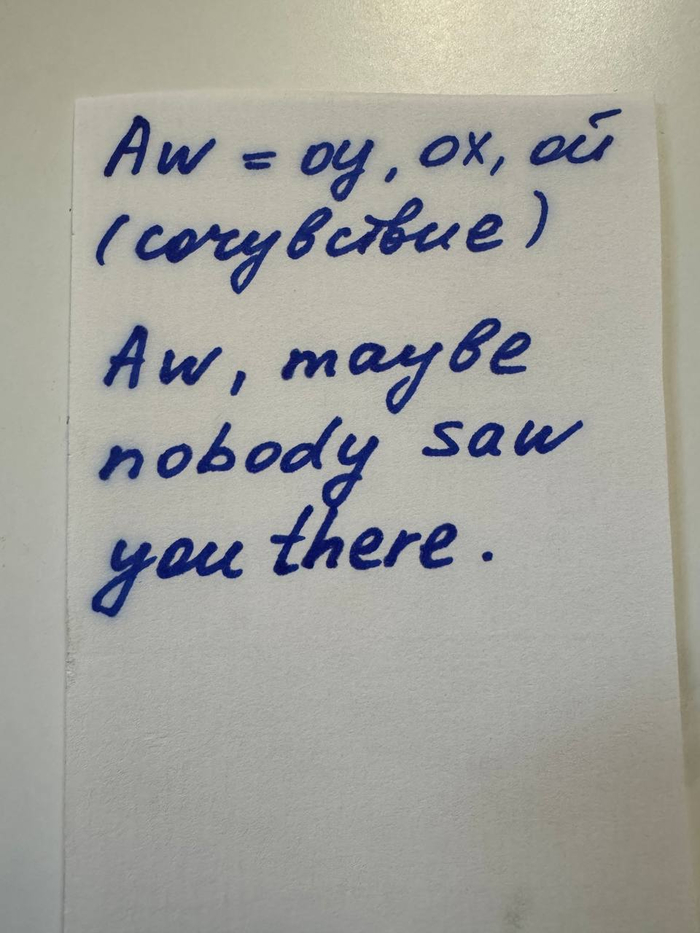 Aw = оу, ох, ой
(сочувствие)
Aw, maybe
nobody saw
you there.